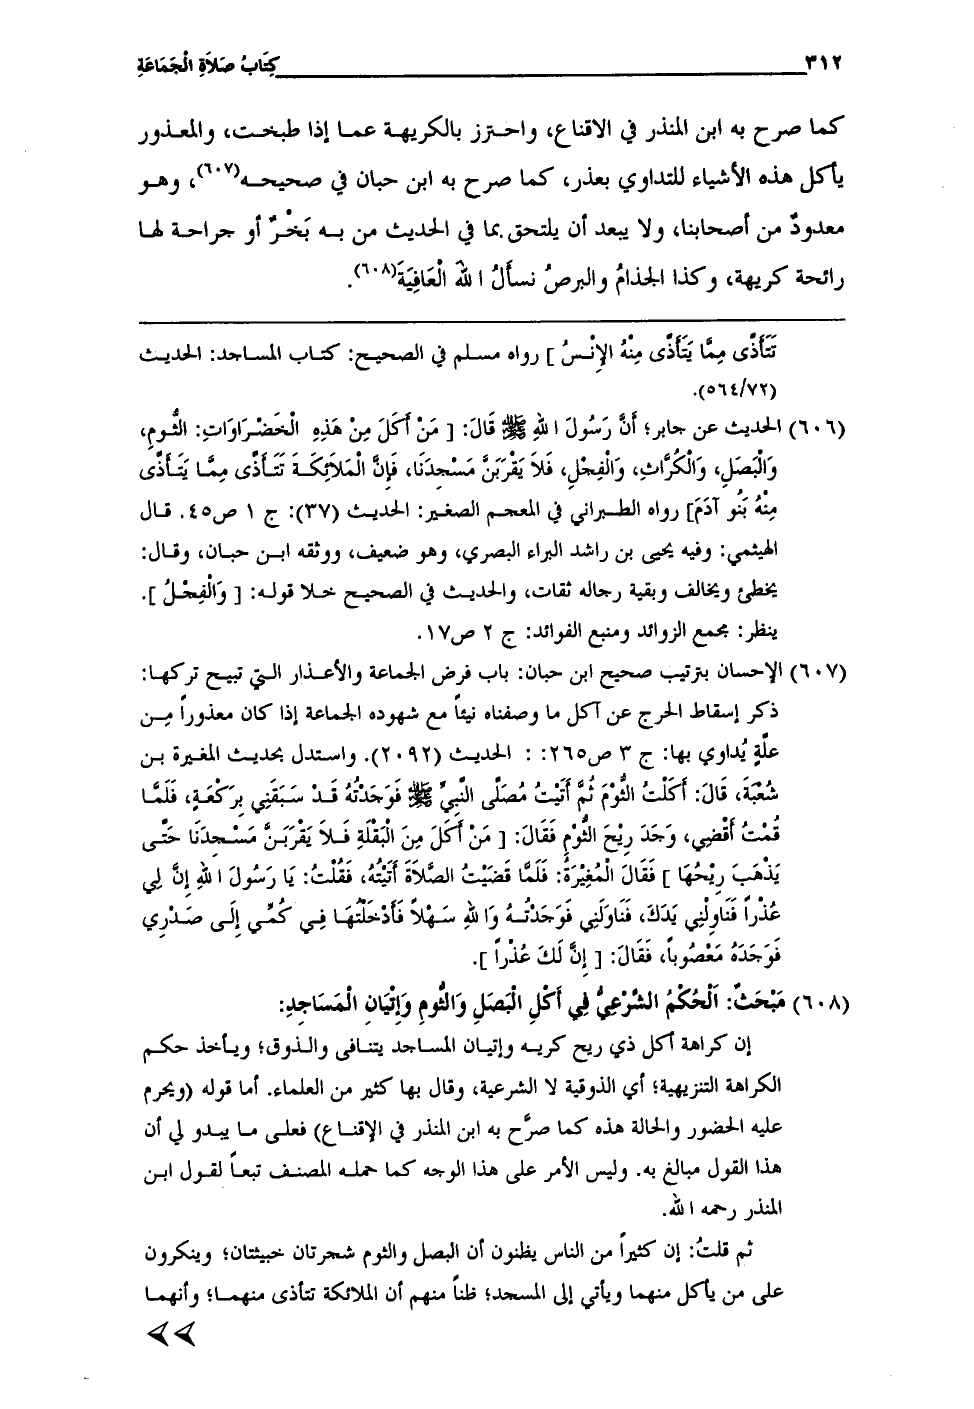 ٣١٢ كِتَابُ صَلاَةِ الْجَمَاعَةِ
كما صرح به ابن المنذر في الاقناع، واحترز بالكريهة عما إذا طبخت، والمعذور
يأكل هذه الأشياء للتداوي بعذر، كما صرح به ابن حبان في صحيحه(٦٠٧)، وهو
معدودٌ من أصحابنا، ولا يبعد أن يلتحق بما في الحديث من به بَخْرٌ أو جراحة لها
رائحة كريهة، وكذا الجذامُ والبرصُ نسأَلُ اللهَ الْعَافِيَةَ(٦٠٨).
تَتَأَذَّى مِمَّا يَتَأَذَّى مِنْهُ الإِنْسُ ] رواه مسلم في الصحيح: كتاب المساجد: الحديث
(٥٦٤/٧٢).
(٦٠٦) الحديث عن جابر؛ أَنَّ رَسُولَ اللهِ ﷺ قَالَ: [ مَنْ أَكَلَ مِنْ هَذِهِ الْخَضْرَاوَاتِ: الثُّومِ،
وَالْبَصَلِ، وَالْكُرَّاثِ، وَالْفِجْلِ، فَلاَ يَقْرَبَنَّ مَسْجِدَنَا، فَإِنَّ الْمَلاَئِكَةَ تَتَأَذَّى مِمَّا يَتَأَذَّى
مِنْهُ بَنُو آدَمَ] رواه الطبراني في المعجم الصغير: الحديث (٣٧): ج ١ ص٤٥. قال
الهيثمي: وفيه يحيى بن راشد البراء البصري، وهو ضعيف، ووثقه ابن حبان، وقال:
يخطئ ويخالف وبقية رجاله ثقات، والحديث في الصحيح خلا قوله: [ وَالْفِجْلُ ].
ينظر: مجمع الزوائد ومنبع الفوائد: ج ٢ ص١٧.
(٦٠٧) الإحسان بترتيب صحيح ابن حبان: باب فرض الجماعة والأعذار التي تبيح تركها:
ذكر إسقاط الحرج عن آكل ما وصفناه نيئاً مع شهوده الجماعة إذا كان معذوراً من
علَّةٍ يُداوي بها: ج ٣ ص٢٦٥: : الحديث (٢٠٩٢). واستدل بحديث المغيرة بن
شُعْبَةَ، قَالَ: أَكَلْتُ الثُّوْمَ ثُمَّ أَتَيْتُ مُصَلَّى النَّبِيِّ ﷺ فَوَجَدْتُهُ قَدْ سَبَقَنِي بِرَكْعَةٍ، فَلَمَّا
قُمْتُ أَقْضِي، وَجَدَ رِيْحَ الثُّوْمِ فَقَالَ: [ مَنْ أَكَلَ مِنَ الْبَقْلَةِ فَلاَ يَقْرَبَنَّ مَسْجِدَنَا حَتَّى
يَذْهَبَ رِيْحُهَا ] فَقَالَ الْمُغِيْرَةُ: فَلَمَّا قَضَيْتُ الصَّلاَةَ أَتَيْتُهُ، فَقُلْتُ: يَا رَسُولَ اللهِ إِنَّ لِي
عُذْراً فَنَاوِلْنِي يَدَكَ، فَنَاوَلَنِي فَوَجَدْتُهُ وَاللهِ سَهْلاً فَأَدْخَلْتُهَا فِي كُمِّي إِلَى صَدْرِي
فَوَجَدَهُ مَعْصُوباً، فَقَالَ: [ إِنَّ لَكَ عُذْراً ].
(٦٠٨) مَبْحَثٌ: اَلْحُكْمُ الشَّرْعِيُّ فِي أَكْلِ الْبَصَلِ وَالثُّومِ وَإِتْيَانِ الْمَسَاجِدِ:
إن كراهة أكل ذي ريح كريه وإتيان المساجد يتنافى والذوق؛ ويأخذ حكم
الكراهة التنزيهية؛ أي الذوقية لا الشرعية، وقال بها كثير من العلماء. أما قوله (ويحرم
عليه الحضور والحالة هذه كما صرَّح به ابن المنذر في الإقناع) فعلى ما يبدو لي أن
هذا القول مبالغ به. وليس الأمر على هذا الوجه كما حمله المصنف تبعاً لقول ابن
المنذر رحمه الله.
ثم قلتُ: إن كثيراً من الناس يظنون أن البصل والثوم شجرتان خبيثتان؛ وينكرون
على من يأكل منهما ويأتي إلى المسجد؛ ظناً منهم أن الملائكة تتأذى منهما؛ وأنهما